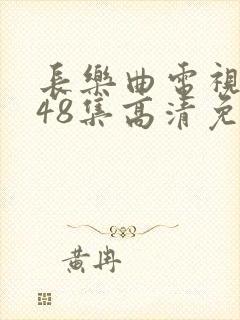 長樂曲電視
48集高清免
黃冉